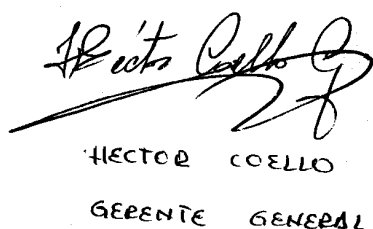 Héctor Coello G
HECTOR COELLO
GERENTE GENERAL